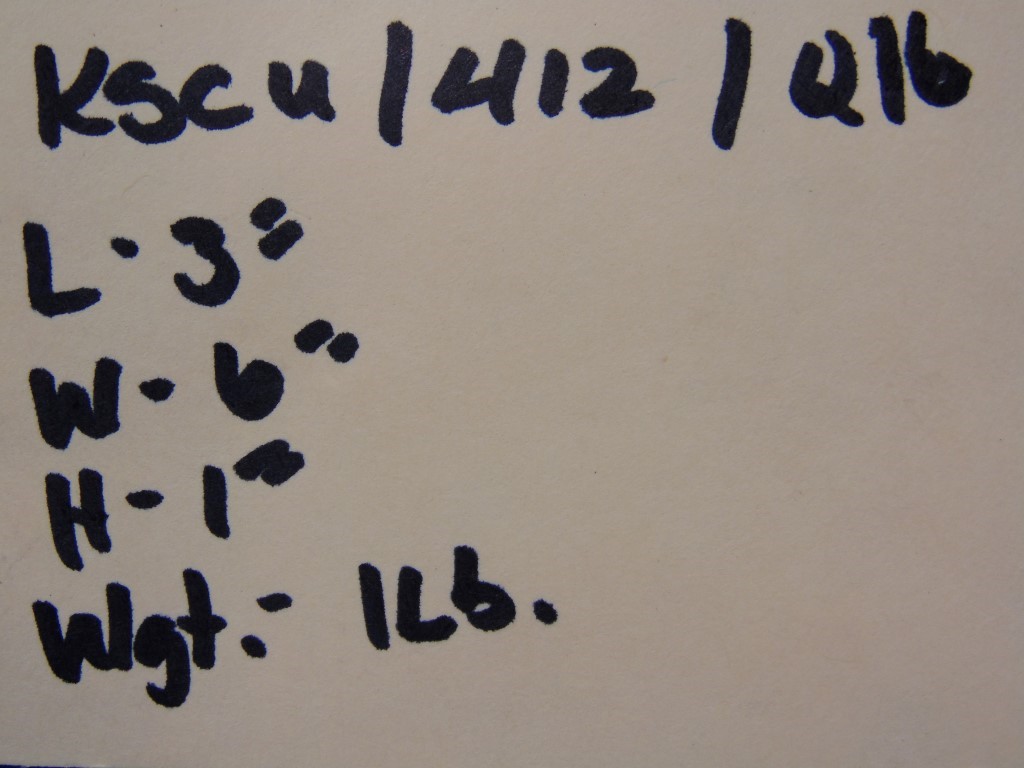 KSCU / 412 / Q16
L - 3"
W - 6"
H - 1"
Wgt. - 1Lb.